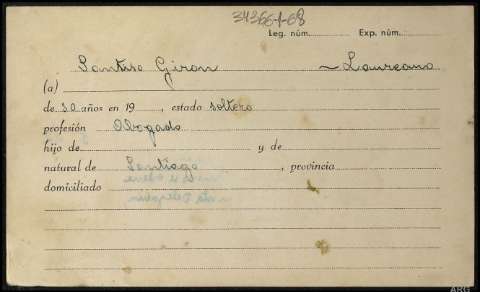 34366-1-68
Leg. núm. Exp. núm.
Santiso Giron ~ Laureano
(a)
de 30 años en 19 , estado soltero
profesión Abogado
hijo de y de
natural de Santiago , provincia
domiciliado
ARG